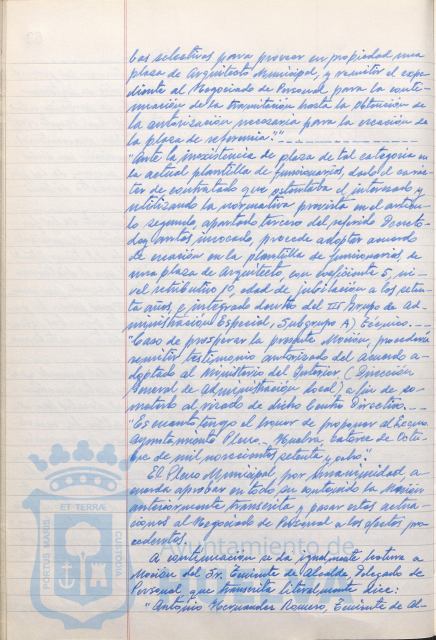 bas selectivas para proveer en propiedad una
plaza de Arquitecto Municipal, y remitir el expe-
diente al Negociado de Personal para la conti-
nuación de la tramitación hasta la obtención de
la autorización necesaria para la creación de
la plaza de referencia."
"Ante la inexistencia de plaza de tal categoria en
la actual plantilla de funcionarios, dado el carác-
ter de contratado que ostentaba el interesado y
utilizando la normativa prevista en el artícu-
lo segundo, apartado tercero del referido Decreto
invocado, procede adoptar acuerdo
de creación en la plantilla de funcionarios, de
una plaza de Arquitecto, con coeficiente 5, ni-
vel retributivo 10, edad de jubilación a los seten-
ta años, e integrado dentro del III Grupo de Ad-
ministración Especial, Subgrupo A) Técnico.
"Caso de prosperar la presente Moción, procedería
remitir testimonio autorizado del acuerdo a-
doptado al Ministerio del Interior (Dirección
General de Administración Local) a fin de so-
meterlo al visado de dicho Centro Directivo.
"Es cuanto tengo el honor de proponer al Excmo.
Ayuntamiento Pleno.- Huelva, catorce de Octu-
bre de mil novecientos setenta y ocho".
El Pleno Municipal por unanimidad a-
cuerda aprobar en todo su contenido la Moción
anteriormente transcrita y pasar estas actua-
ciones al Negociado de Personal a los efectos pro-
cedentes.
A continuación se da igualmente lectura a
Moción del Sr. Teniente de Alcalde, Delegado de
Personal, que transcrita literalmente dice:
"Antonio Hernandez Romero, Teniente de Al-
PORTUS MARIS ET TERRAE CUSTODIA
Ayuntamiento de